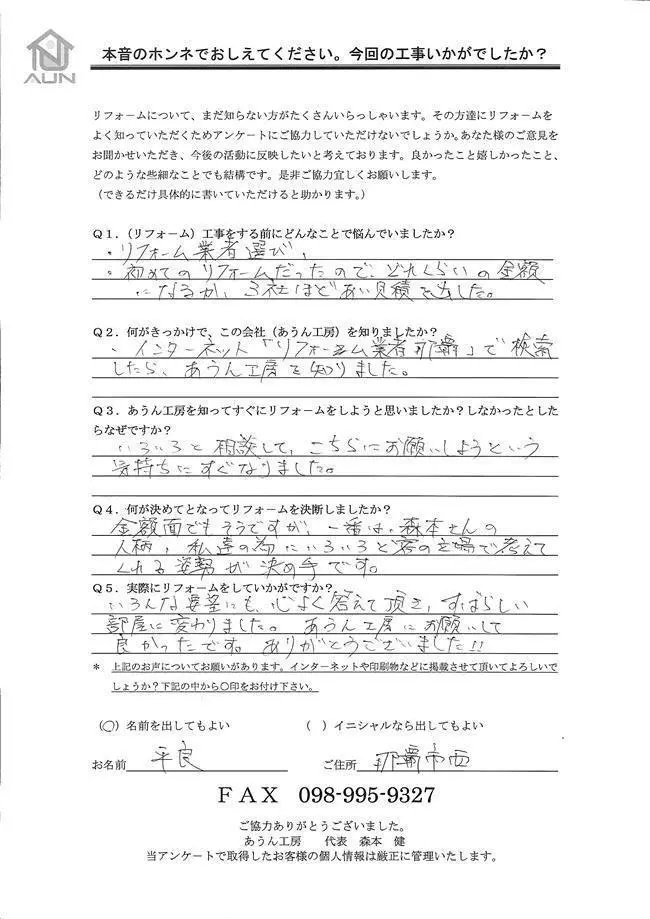 AUN
本音のホンネでおしえてください。今回の工事いかがでしたか？
リフォームについて、まだ知らない方がたくさんいらっしゃいます。その方達にリフォームを
よく知っていただくためアンケートにご協力していただけないでしょうか。あなた様のご意見を
お聞かせいただき、今後の活動に反映したいと考えております。良かったこと嬉しかったこと、
どのような些細なことでも結構です。是非ご協力宜しくお願いします。
（できるだけ具体的に書いていただけると助かります。）
Q１．（リフォーム）工事をする前にどんなことで悩んでいましたか？
・リフォーム業者選び、
・初めてのリフォームだったので、どれくらいの金額
になるか、3社ほどあい見積を出した。
Q２．何がきっかけで、この会社（あうん工房）を知りましたか？
・インターネット「リフォーム業者那覇」で検索
したら、あうん工房を知りました。
Q３．あうん工房を知ってすぐにリフォームをしようと思いましたか？しなかったとした
らなぜですか？
いろいろと相談して、こちらにお願いしようという
気持ちにすぐなりました。
Q４．何が決めてとなってリフォームを決断しましたか？
金額面でもそうですが、一番は、森本さんの
人柄、私達の為にいろいろと客の立場で考えて
くれる姿勢が決め手です。
Q５．実際にリフォームをしていかがですか？
いろんな要望にも、心よく答えて頂き、すばらしい
部屋に変わりました。あうん工房にお願いして
良かったです。ありがとうございました!!
＊ 上記のお声についてお願いがあります。インターネットや印刷物などに掲載させて頂いてよろしいで
しょうか？下記の中から○印をお付け下さい。
（○）名前を出してもよい （ ）イニシャルなら出してもよい
お名前 平良 ご住所 那覇市西
FAX 098-995-9327
ご協力ありがとうございました。
あうん工房 代表 森本 健
当アンケートで取得したお客様の個人情報は厳正に管理いたします。